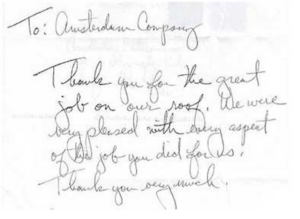 To: Amsterdam Company
Thank you for the great
job on our roof. We were
very pleased with every aspect
of the job you did for us.
Thank you very much.